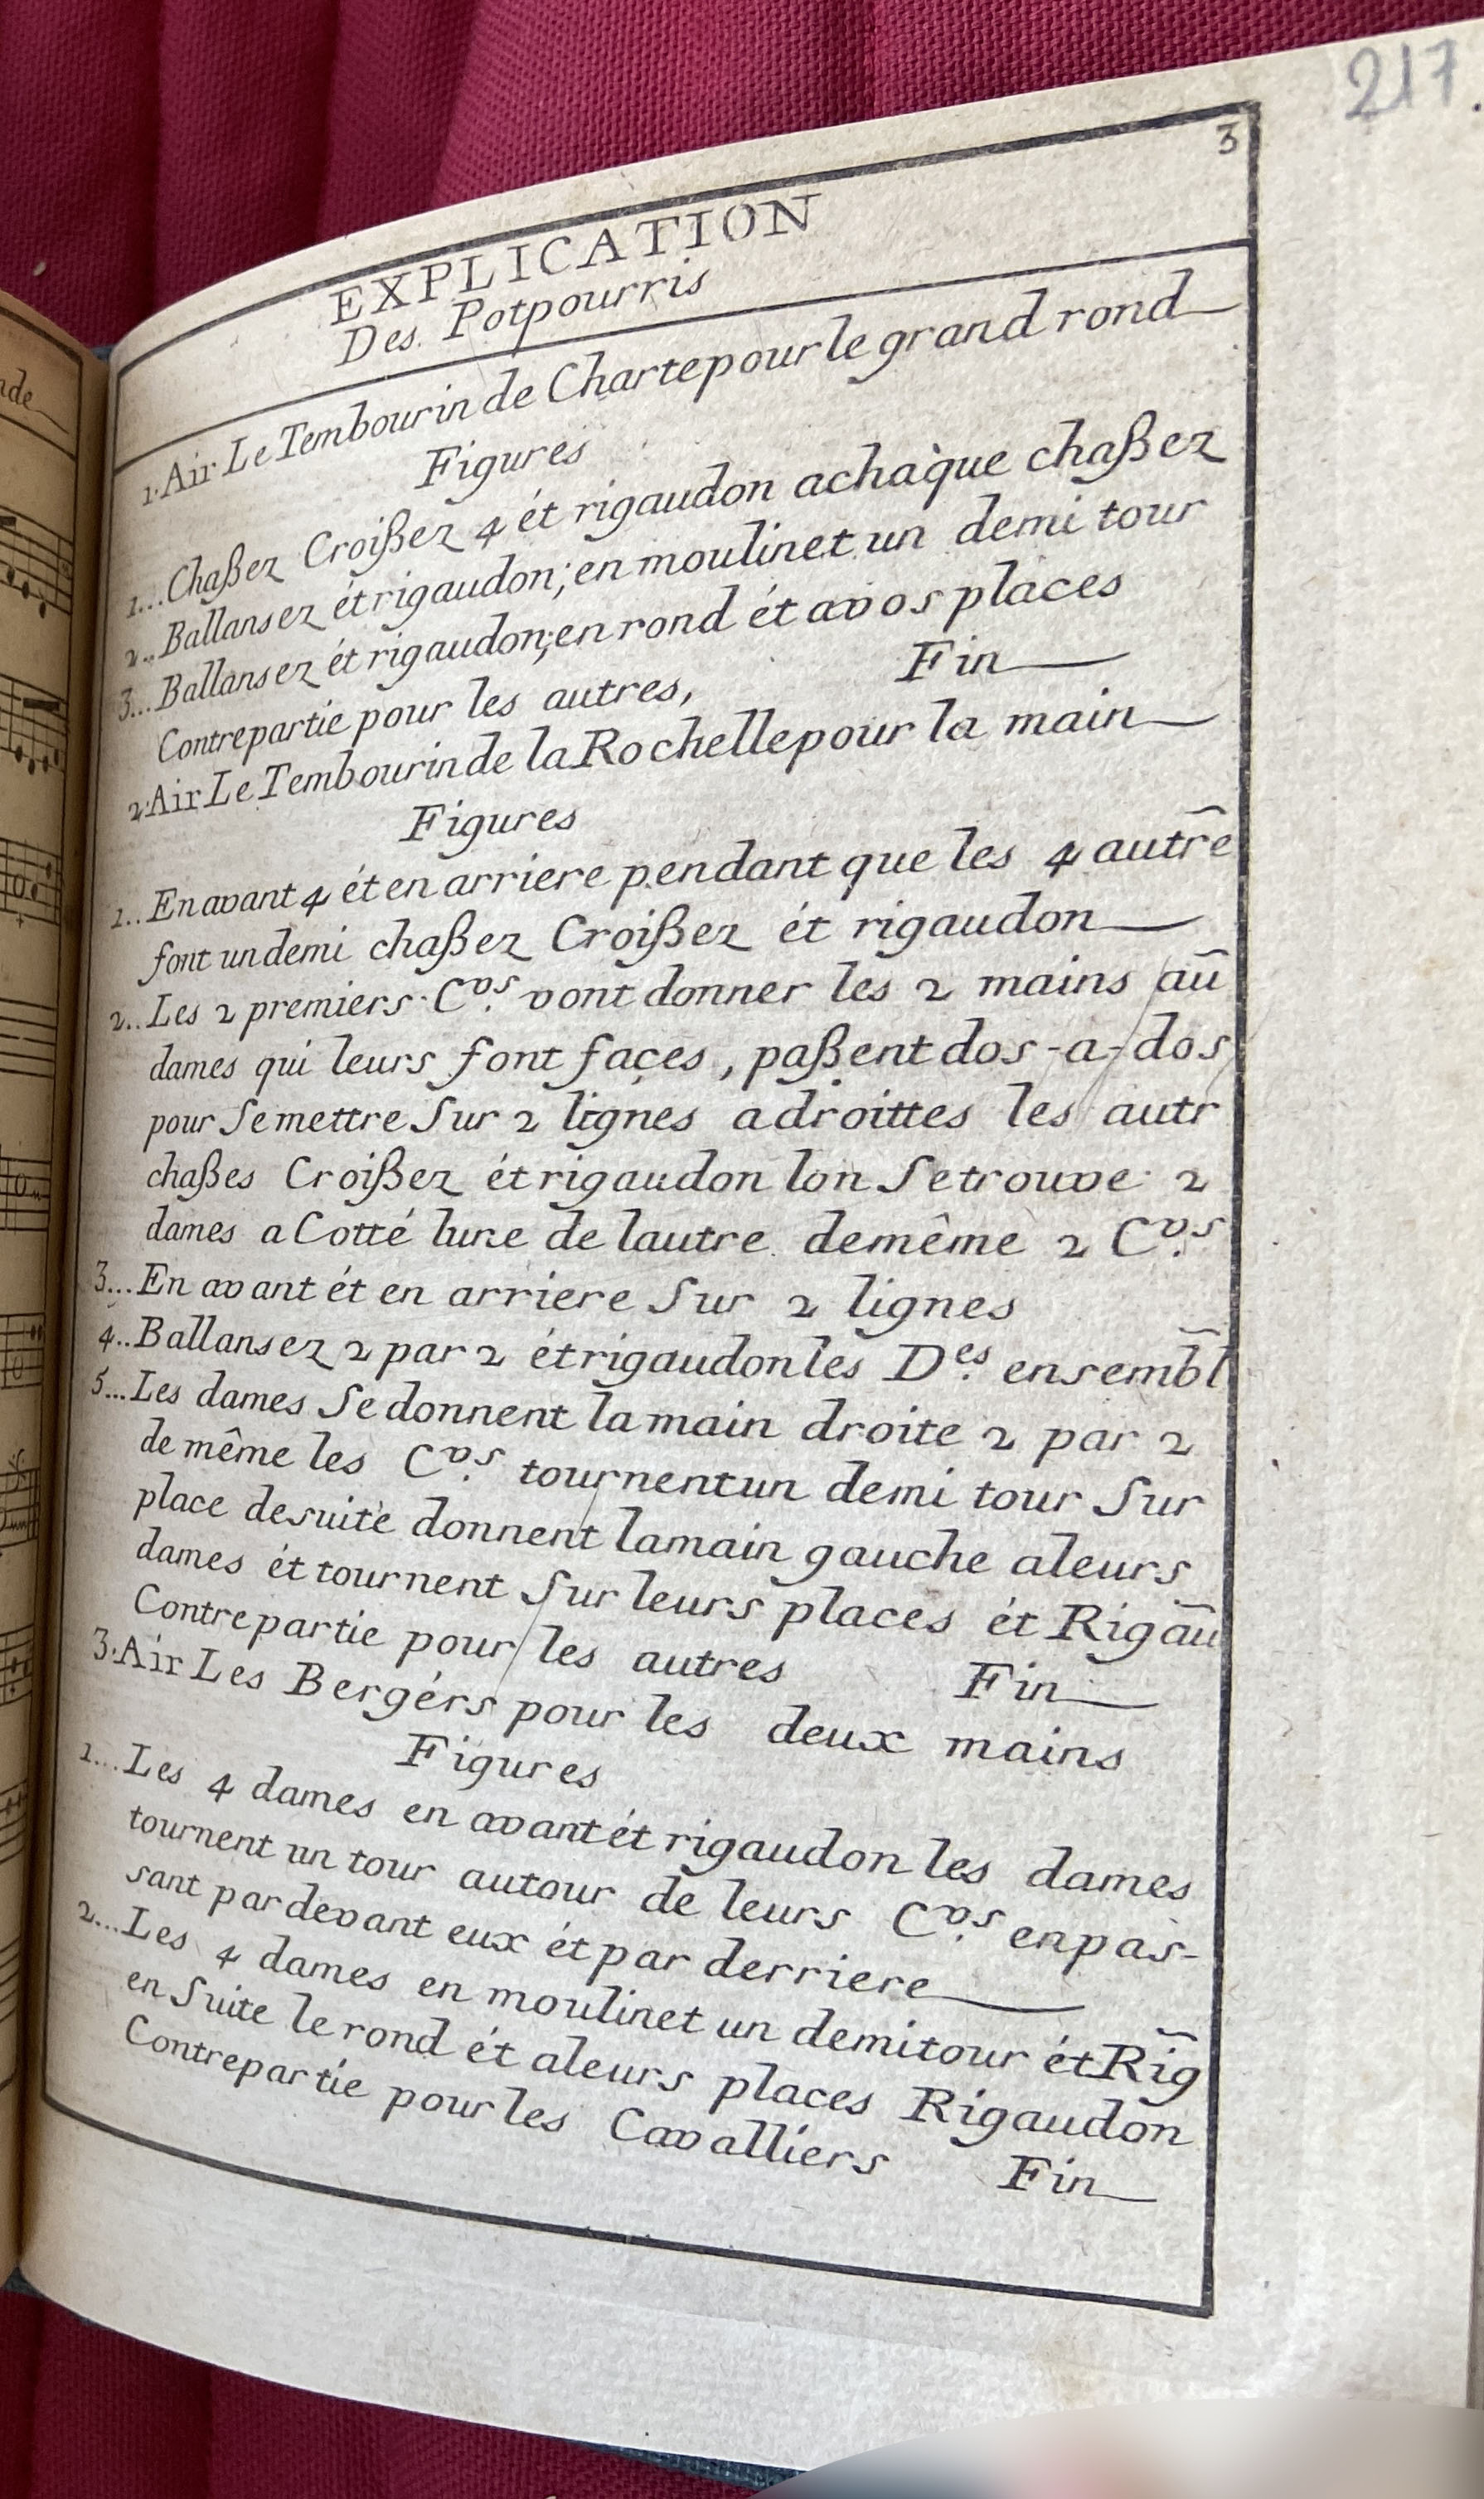 217.
3
EXPLICATION
Des Potpourris
1. Air Le Tembourin de Charte pour le grand rond
Figures
1... Chaßez Croißez 4 ét rigaudon achaque chaßez
2.. Ballansez ét rigaudon; en moulinet un demi tour
3... Ballansez ét rigaudon; en rond ét a vos places
Contrepartie pour les autres, Fin
2. Air Le Tembourin de la Rochelle pour la main
Figures
1.. En avant 4 ét en arriere pendant que les 4 autr̃e
font un demi chaßez Croißez ét rigaudon
2.. Les 2 premiers C.vs vont donner les 2 mains aũ
dames qui leurs font faces, paßent dos-a-dos
pour Se mettre Sur 2 lignes a droittes les autr
chaßes Croißez ét rigaudon lon Se trouve 2
dames a Cotté lune de lautre de même 2 C.vs
3... En avant ét en arriere Sur 2 lignes
4.. Ballansez 2 par 2 ét rigaudon les D.es ensembl̃
5... Les dames Se donnent la main droite 2 par 2
de même les C.vs tournent un demi tour Sur
place de suite donnent la main gauche a leurs
dames ét tournent Sur leurs places ét Rigaũ
Contrepartie pour les autres Fin
3. Air Les Bergérs pour les deux mains
Figures
1... Les 4 dames en avant ét rigaudon les dames
tournent un tour autour de leurs C.vs en pas-
sant par devant eux ét par derriere
2... Les 4 dames en moulinet un demi tour ét Rig̃
en Suite le rond ét a leurs places Rigaudon
Contrepartie pour les Cavalliers Fin